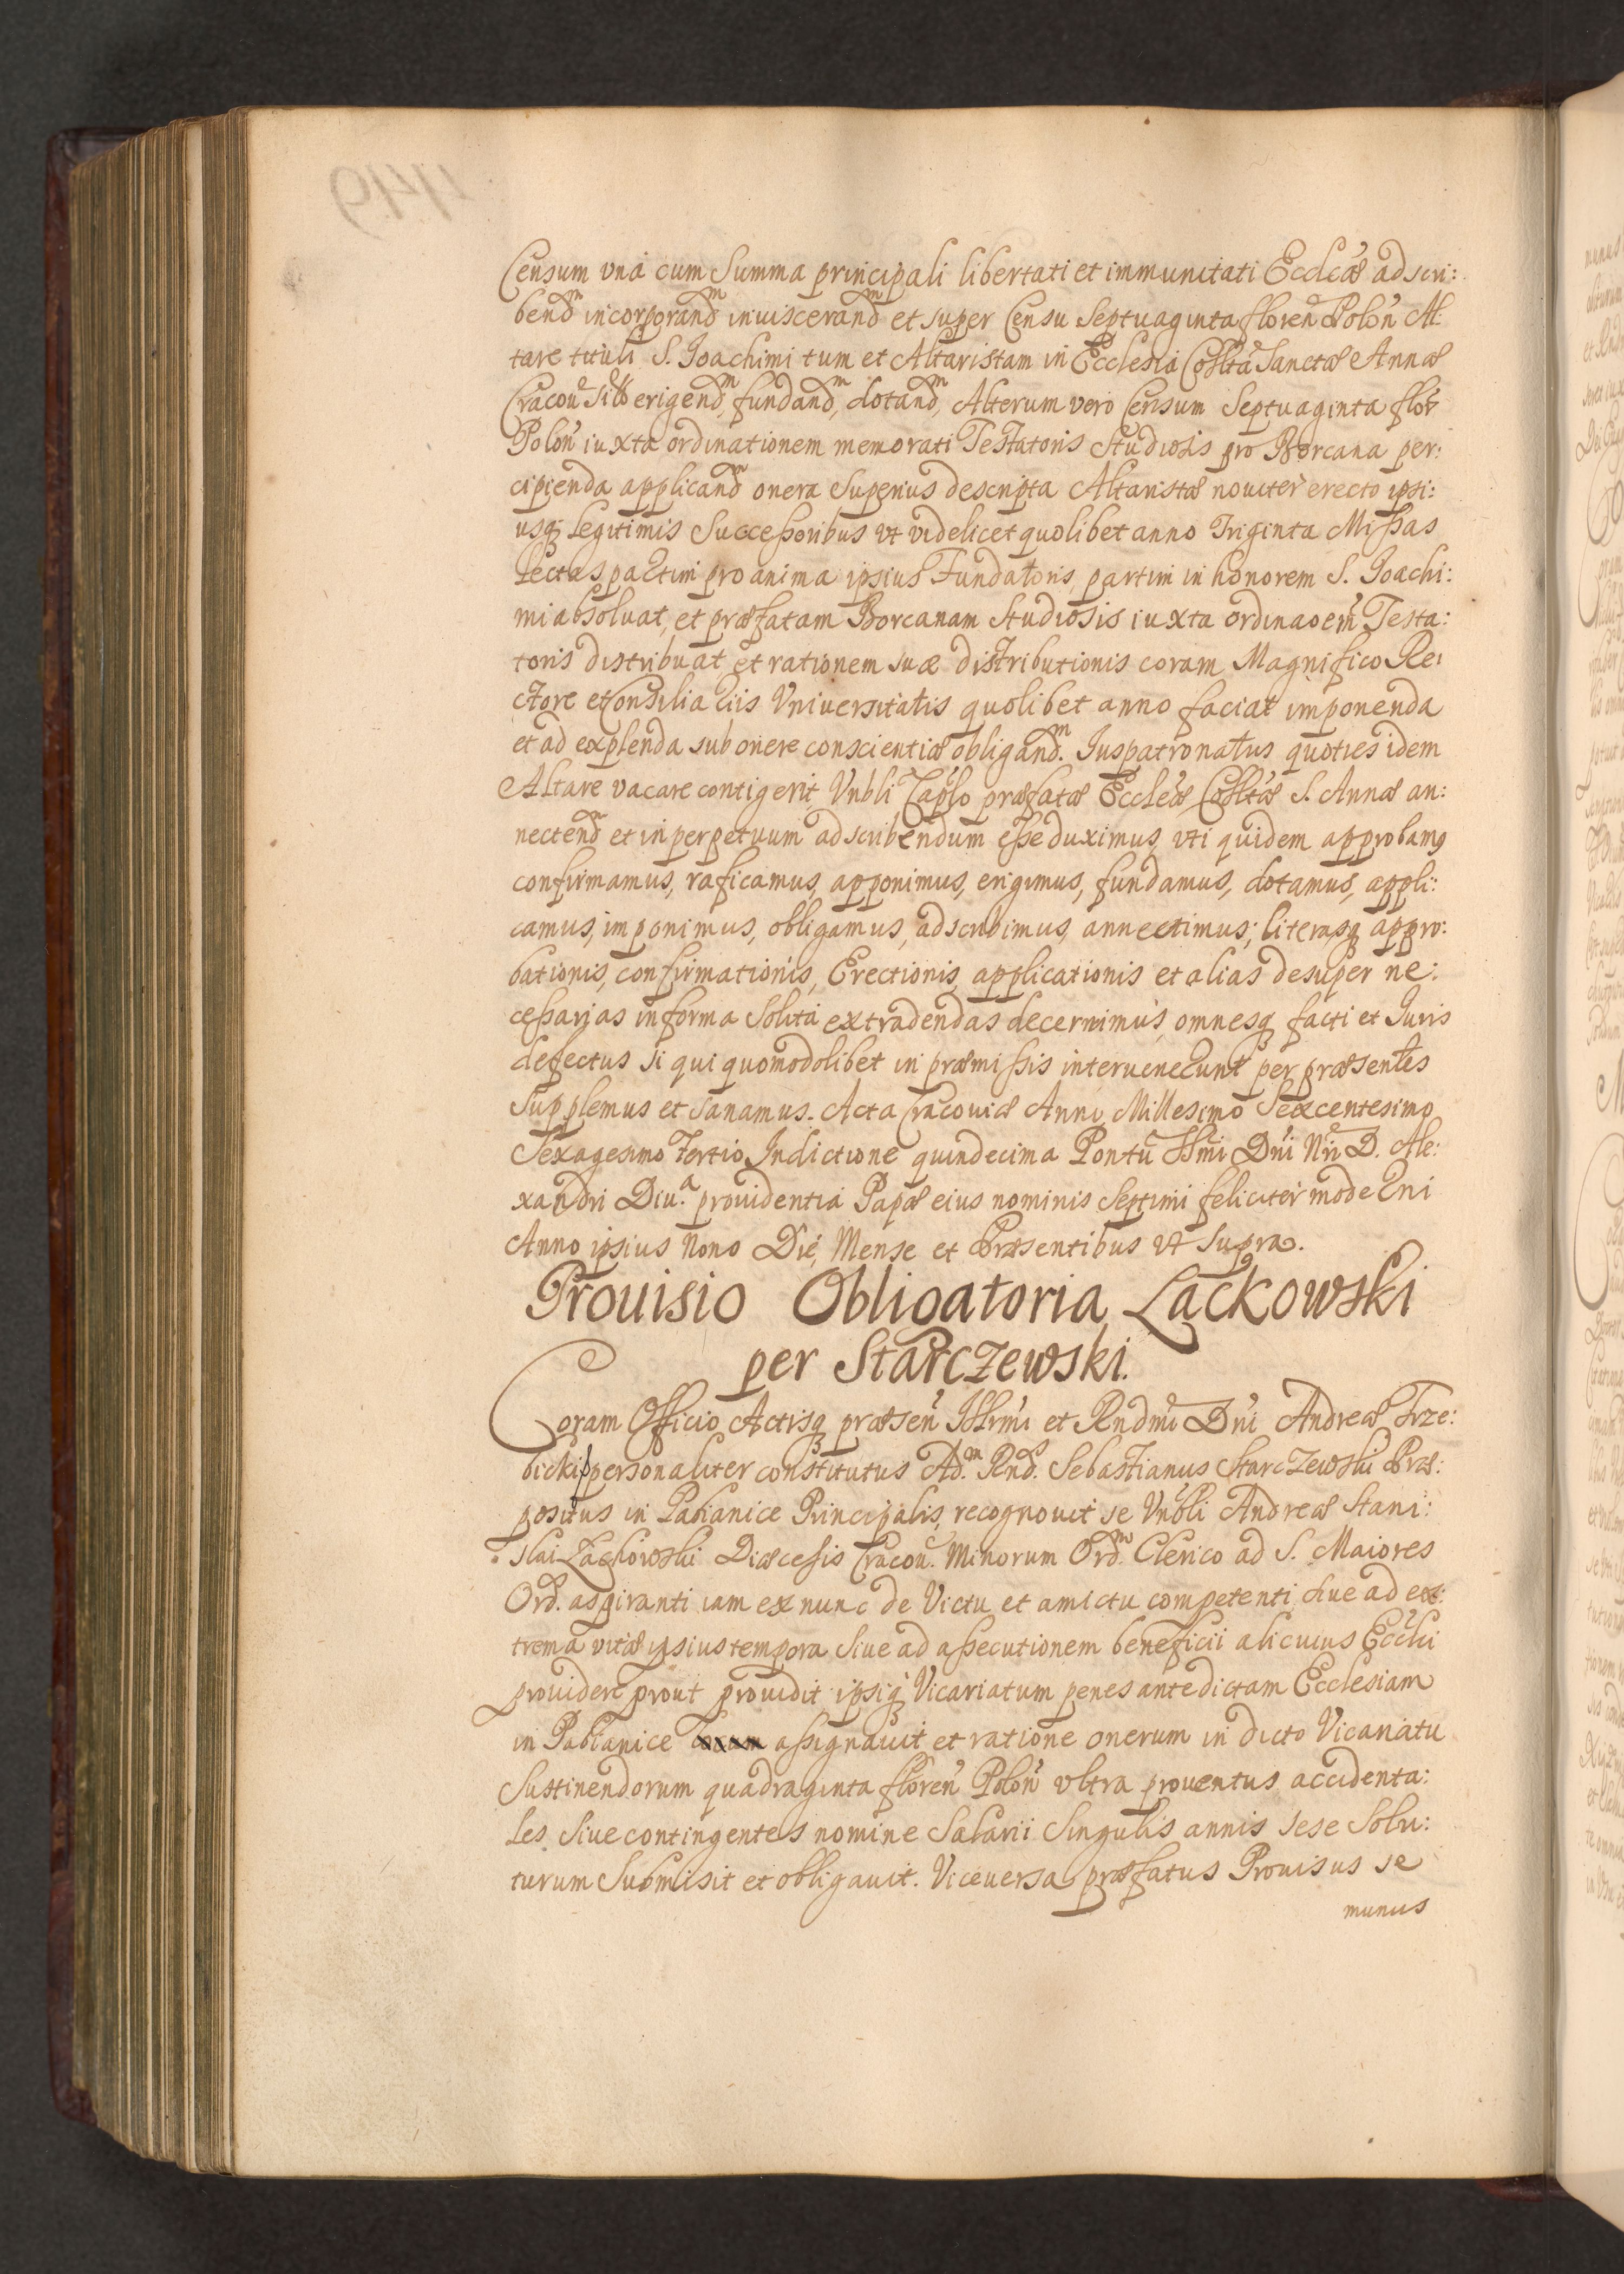 Censum vná cum Summa principali libertati et immunitati Eccleæ adscri:
bendm incorporandm inuiscerandm et super Censu Septuaginta floren Polon Al:
tare tituli S. Joachimi tum et Altaristam in Ecclesia Collta Sanctæ Annæ
Cracou erigendm, fundandm, dotandm, Alterum vero Censum Septuaginta flor
Polon iuxta ordinationem memorati Testatoris Studiosis pro Borcana per:
cipienda applicandm onera Superius descripta Altaristæ nouiter erecto ipsi:
usq legitimis Successoribus vt videlicet quolibet anno Triginta Missas
Lectas partim pro anima ipsius Fundatoris, partim in honorem S. Joachi:
mi absoluat, et præfatam Borcanam Studiosis iuxta ordinaoem Testa:
toris distribuat et rationem suæ distributionis coram Magnifico Re:
ctore et Consiliariis Vniuersitatis quolibet anno faciat imponenda
et ad explenda sub onere conscientiæ obligandm. Juspatronatus quoties idem
Altare vacare contigerit, Vnbli Caplo præfatæ Eccleæ Colltæ S. Annæ an:
nectendm et in perpetuum adscribendum esse duximus, vti quidem approbamus
confirmamus, raficamus, apponimus, erigimus, fundamus, dotamus, appli:
camus, imponimus, obligamus, adscribimus, annectimus; literasq appro:
bationis, confirmationis, Erectionis, applicationis et alias desuper ne:
cessarias in forma Solita extradendas decernimus, omnesq facti et Juris
defectus si qui quomodolibet in præmissis interuenerunt per præsentes
Supplemus et sanamus. Acta Cracouiæ Anno Millesimo Sexcentesimo
Sexagesimo Tertio Indictione quindecima Pontu SSmi Dni Nri D. Ale:
xandri Diu.a prouidentia Papæ eius nominis Septimi feliciter moderni
Anno ipsius Nono Die, Mense et Præsentibus vt Supra.
Prouisio Obligatoria Lackowski
per Starczewski.
Coram Officio Actisq præsen Illrmi et Rndmi Dni Andreæ Trze:
bicki personaliter constitutus Ad.m Rnd. Sebastianus Starczewski Præ:
positus in Pabianice Principalis, recognouit se Vnbli Andreæ Stani:
slai Lackowski Diæcesis Cracou. Minorum Ord.m Clerico ad S. Maiores
Ord. aspiranti iam ex nunc de Victu et amictu competenti siue ad ex:
trema vitæ ipsius tempora Siue ad assecutionem beneficii alicuius Ecclici
prouidere prout prouidit ipsiq Vicariatum penes antedictam Ecclesiam
in Pabianice assignauit et ratione onerum in dicto Vicariatu
Sustinendorum quadraginta floren Polon vltra prouentus accidenta:
les Siue contingentes nomine Salarii Singulis annis sese Solu:
turum Submisit et obligauit. Viceuersa præfatus Prouisus se
munus